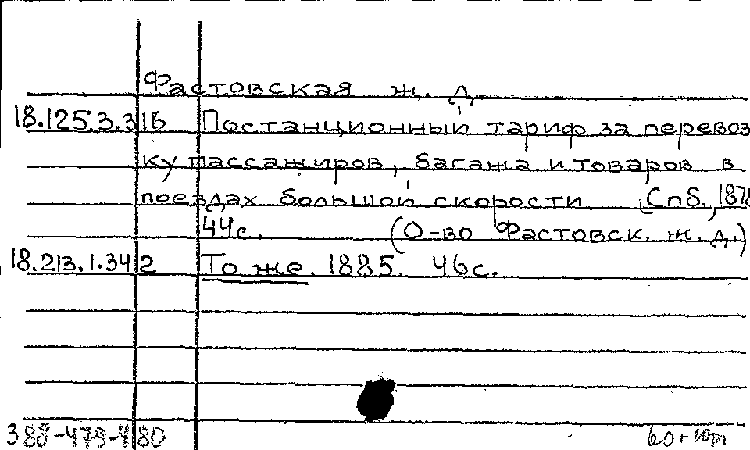 Фастовская ж. д.
18.125.3.316 Постанционный тариф за перевоз
ку пассажиров, багажа и товаров в
поездах большой скорости Спб., 187
44с. (О-во Фастовск. ж. д.)
18.213.1.342 То же. 1885. 46с.
388-479-480